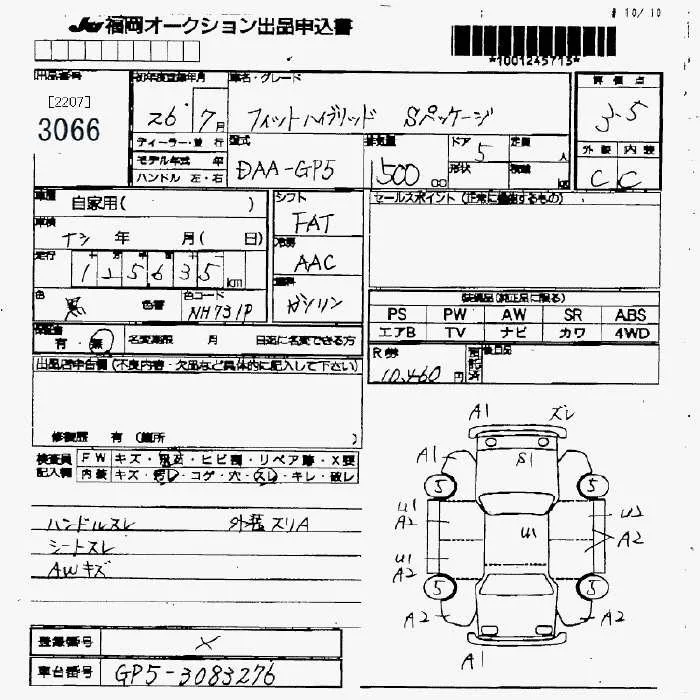 # 10/10
JU 福岡オークション出品申込書
*1001245713*
出品番号
[2207]
3066
初年度登録年月
26 7月
車名・グレード
フィットハイブリッド Sパッケージ
評価点
3.5
ディーラー・並行
モデル年式 年
ハンドル 左・右
型式
DAA-GP5
排気量
1500 CC
ドア
5
形状
定員
人
積載
kg
外装 内装
C C
車歴
自家用( )
車検
ナシ 年 月( 日)
走行
115635 km
色
黒
色替
色コード
NH731P
シフト
FAT
冷房
AAC
燃料
ガソリン
セールスポイント (正常に機能するもの)
装備品(純正品に限る)
PS PW AW SR ABS
エアB TV ナビ カワ 4WD
保証書
有・無
名変期限 月 日迄に名変できる方
R券
10,460円
後日品
出品店申告欄 (不良内容・欠品など具体的に記入して下さい)
修復歴 有 (箇所 )
検査員
記入欄
FW キズ・飛石・ヒビ割・リペア跡・X要
内装 キズ・汚レ・コゲ・穴・スレ・キレ・破レ
ハンドルスレ 外装スリA
シートスレ
AWキズ
A1 ズレ
A1 S1 A1
5 5
U1 A2 U1 U2
A2
U1 A2
5 5
A2 A2
A1
登録番号 ×
車台番号 GP5-3083276